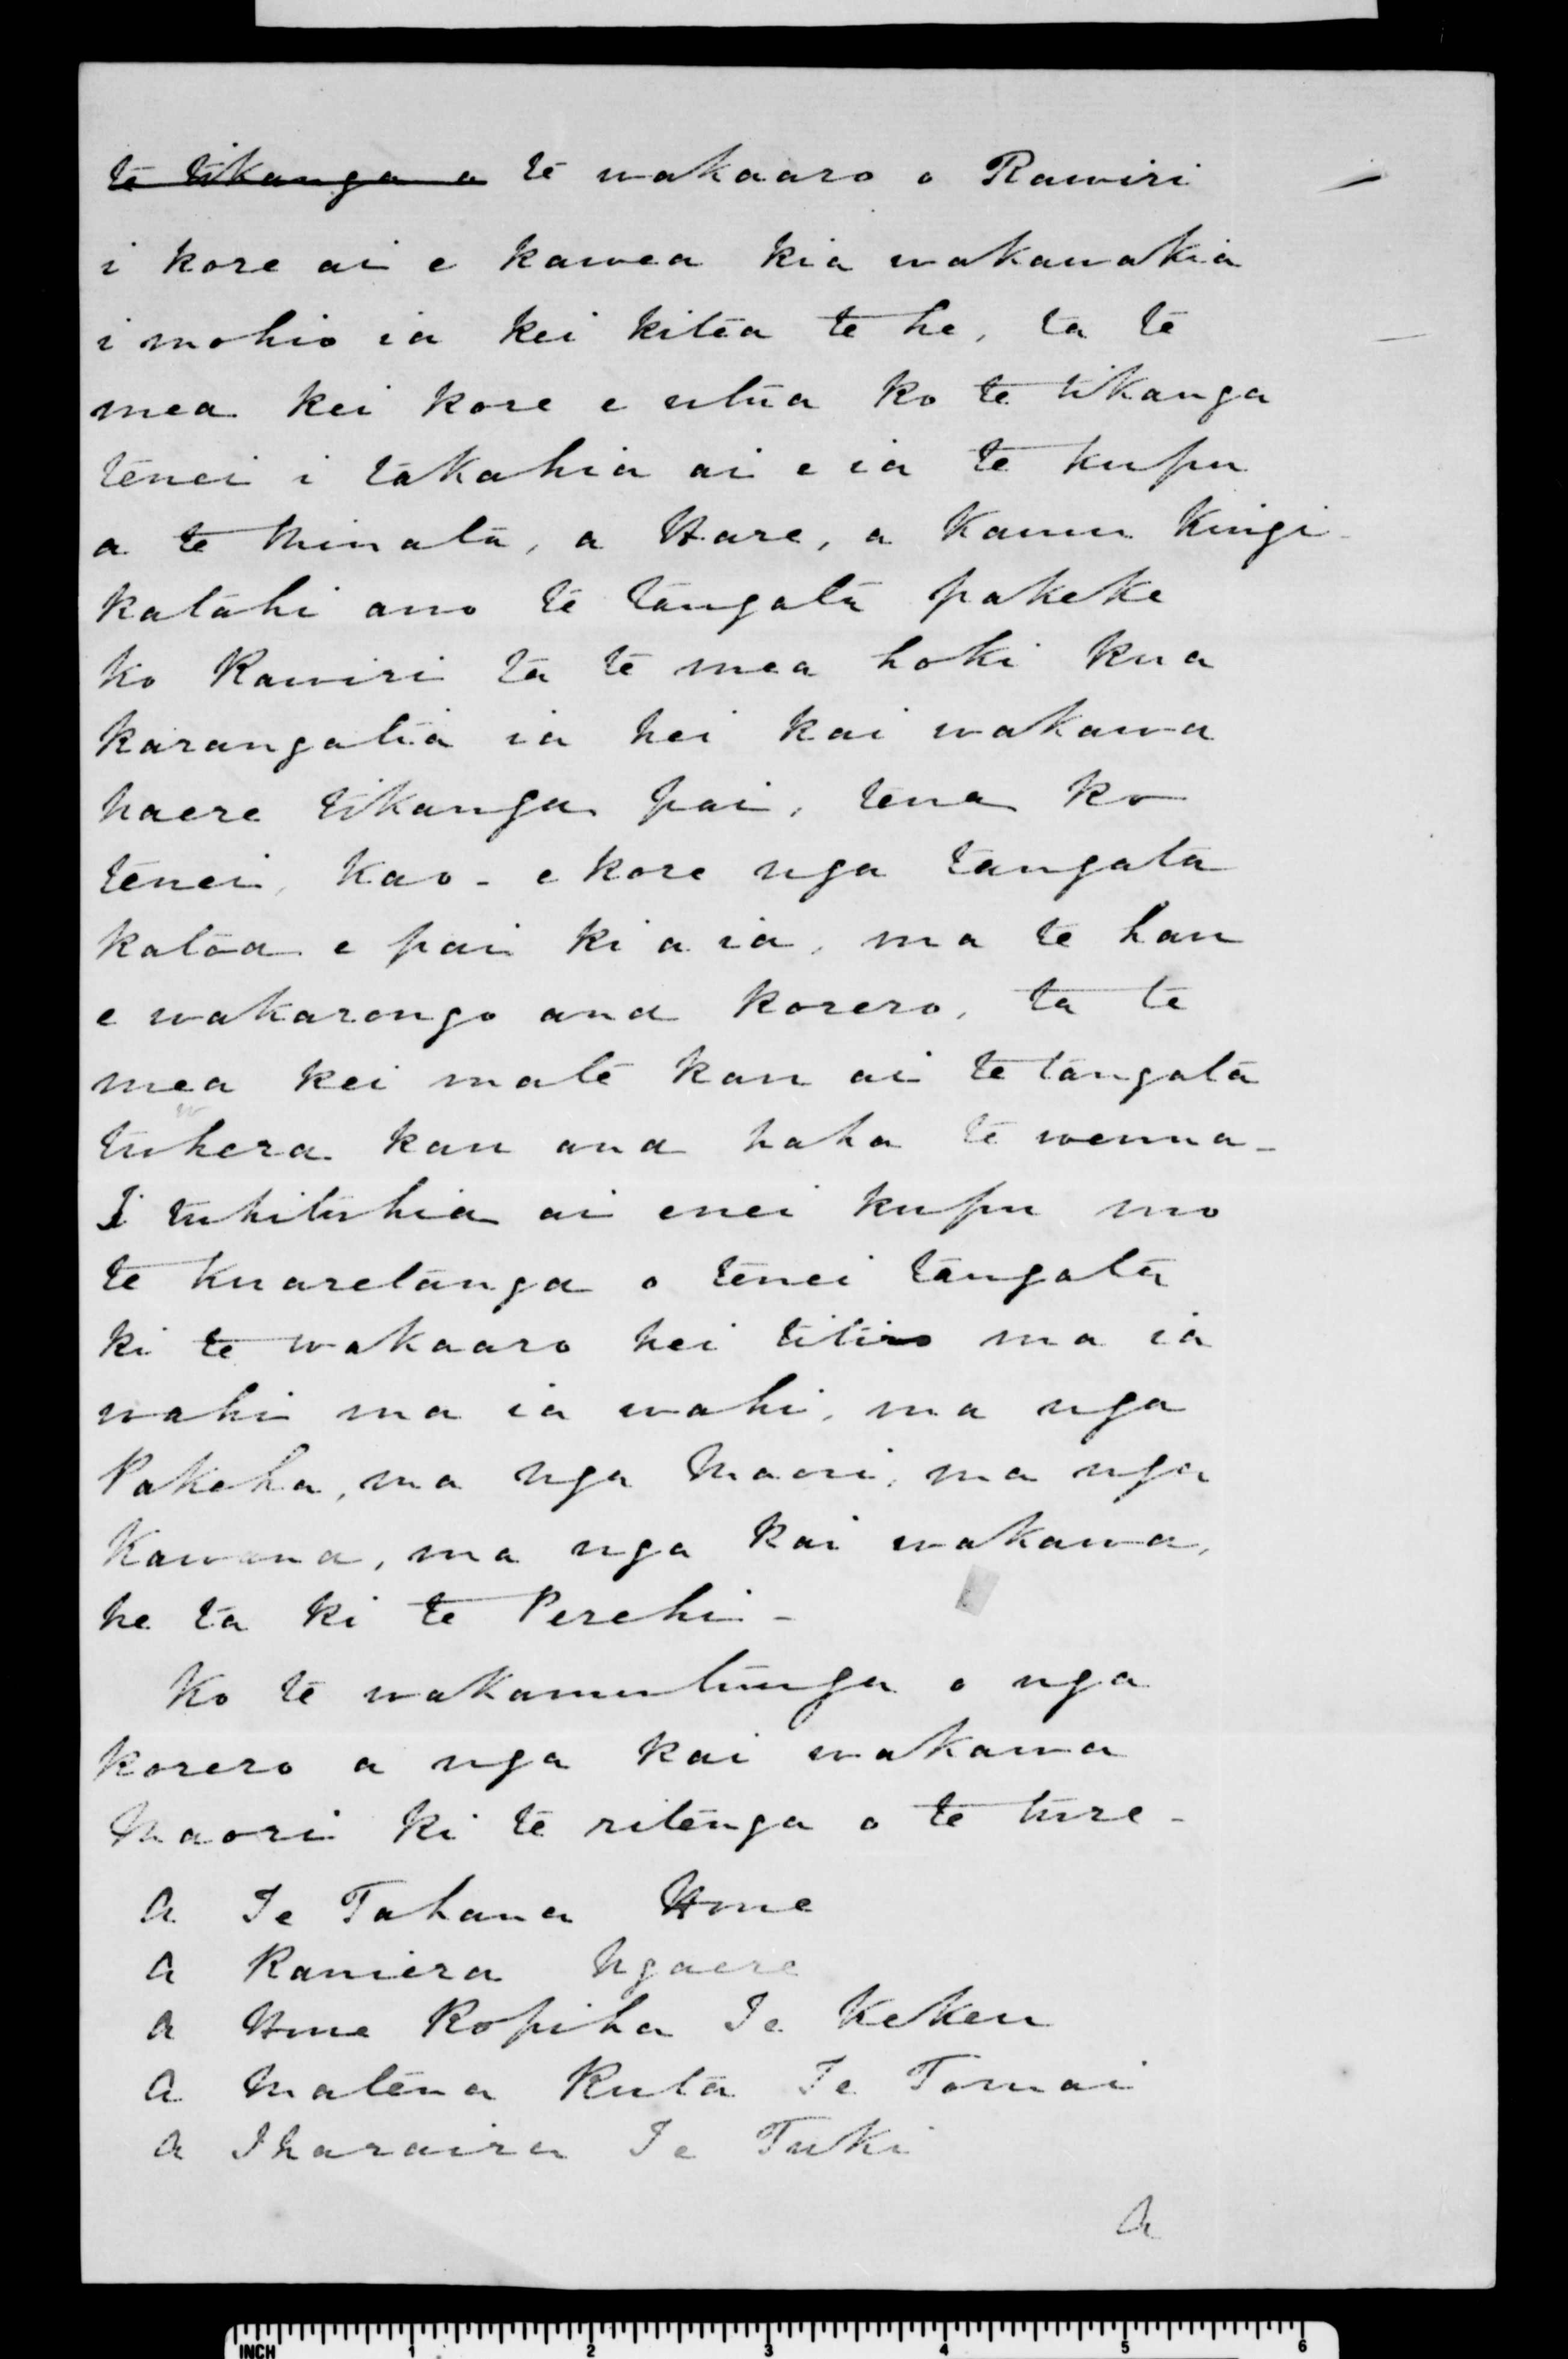 te tikanga a te wakaaro o Rawiri
i kore ai e kawea kia wakawakia
i mohio ia kei kitea te he, ta te
mea kei kore e utua ko te tikanga
tenei i takahia ai e ia te kupu
a te Minata, a Hare, a Kamu Kingi-
katahi ano te tangata pakeke
ko Rawiri ta te mea hoki kua
karangatia ia hei kai wakawa
haere tikanga pai, tena ko
tenei, kao - e kore nga tangata
katoa e pai ki a ia, ma te hau
e wakarongo ana korero, ta te
mea kei mate kau ai te tangata
tuhera kau ana haha te wenua -
I tuhituhia ai enei kupu mo
te kuaretanga o tenei tangata
ki te wakaaro hei titiro ma ia
wahi ma ia wahi, ma nga
Pakeha, ma nga Maori, ma nga
Kawana, ma nga kai wakawa,
he ta ki te Perehi -
Ko te wakamutunga o nga
korero a nga kai wakawa
Maori ki te ritenga o te ture -
A Te Tahana Hme
A Raniera Ngaere
A Hme Ropiha Te Kekeu
A Matena Ruta Te Tomai
A Iharaira Te Tuki
A
INCH 1 2 3 4 5 6